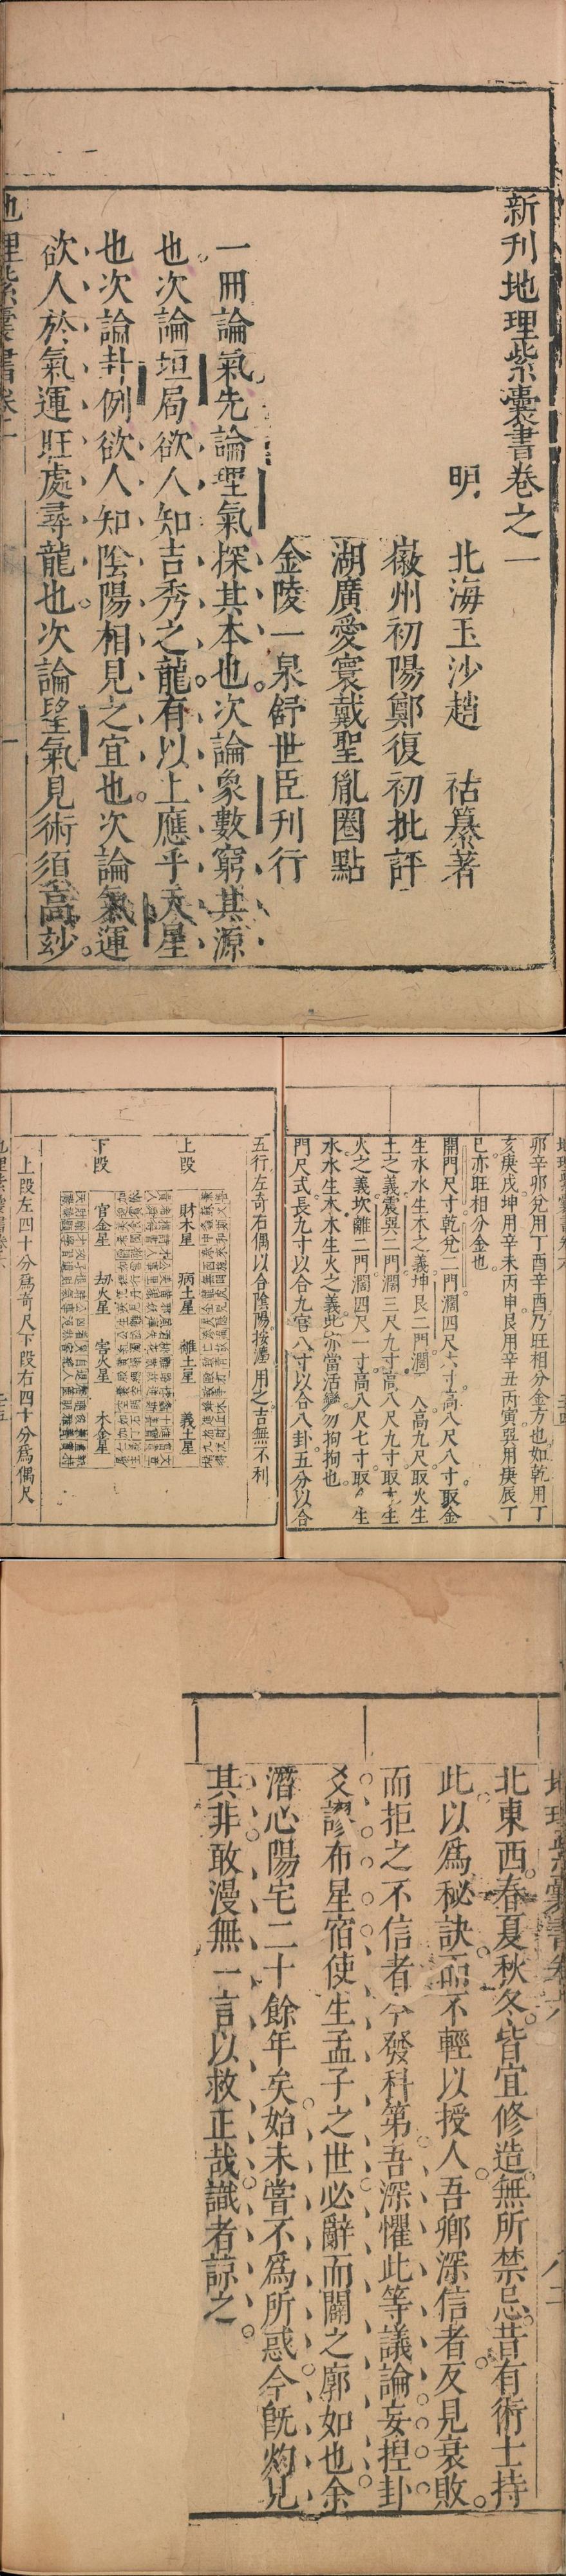 新刊地理紫囊書卷之一
明　北海玉沙趙　祜纂著
徽州初陽鄭復初批評
湖廣愛寰戴聖胤圈點
金陵一泉舒世臣刊行
一冊論氣先論理氣探其本也次論象數窮其源
也次論垣局欲人知吉秀之龍有以上應乎天星
也次論卦例欲人知陰陽相見之宜也次論氣運
欲人於氣運旺處尋龍也次論望氣見術須高玅
地理紫囊書卷一　一
卯辛卯兌用丁酉辛酉乃旺相分金方也如乾用丁
亥庚戌坤用辛未丙申艮用辛丑丙寅巽用庚辰丁
巳亦旺相分金也
開門尺寸乾兌二門濶四尺六寸高八尺八寸取金
生水水生木之義坤艮二門濶二　八高九尺取火生
土之義震巽二門濶三尺九寸高八尺九寸取　生
火之義坎離二門濶四尺一寸高八尺七寸取　生
水水生木木生火之義此亦當活變勿拘拘也
門尺式長九寸以合九宮八寸以合八卦五分以合
五行左奇右偶以合陰陽按濶用之吉無不利
上段　財木星　病土星　離土星　義土星
下段　官金星　刼火星　害火星　木金星
上段左四十分爲奇尺下段右四十分爲偶尺
地理紫囊書卷六
北東西春夏秋冬皆宜修造無所禁忌昔有術士持
此以爲秘訣而不輕以授人吾鄉深信者反見衰敗
而拒之不信者今發科第吾深懼此等議論妄捏卦
爻謬布星宿使生孟子之世必辭而闢之廓如也余
潛心陽宅二十餘年矣始未嘗不爲所惑今旣灼見
其非敢漫無一言以救正哉識者諒之